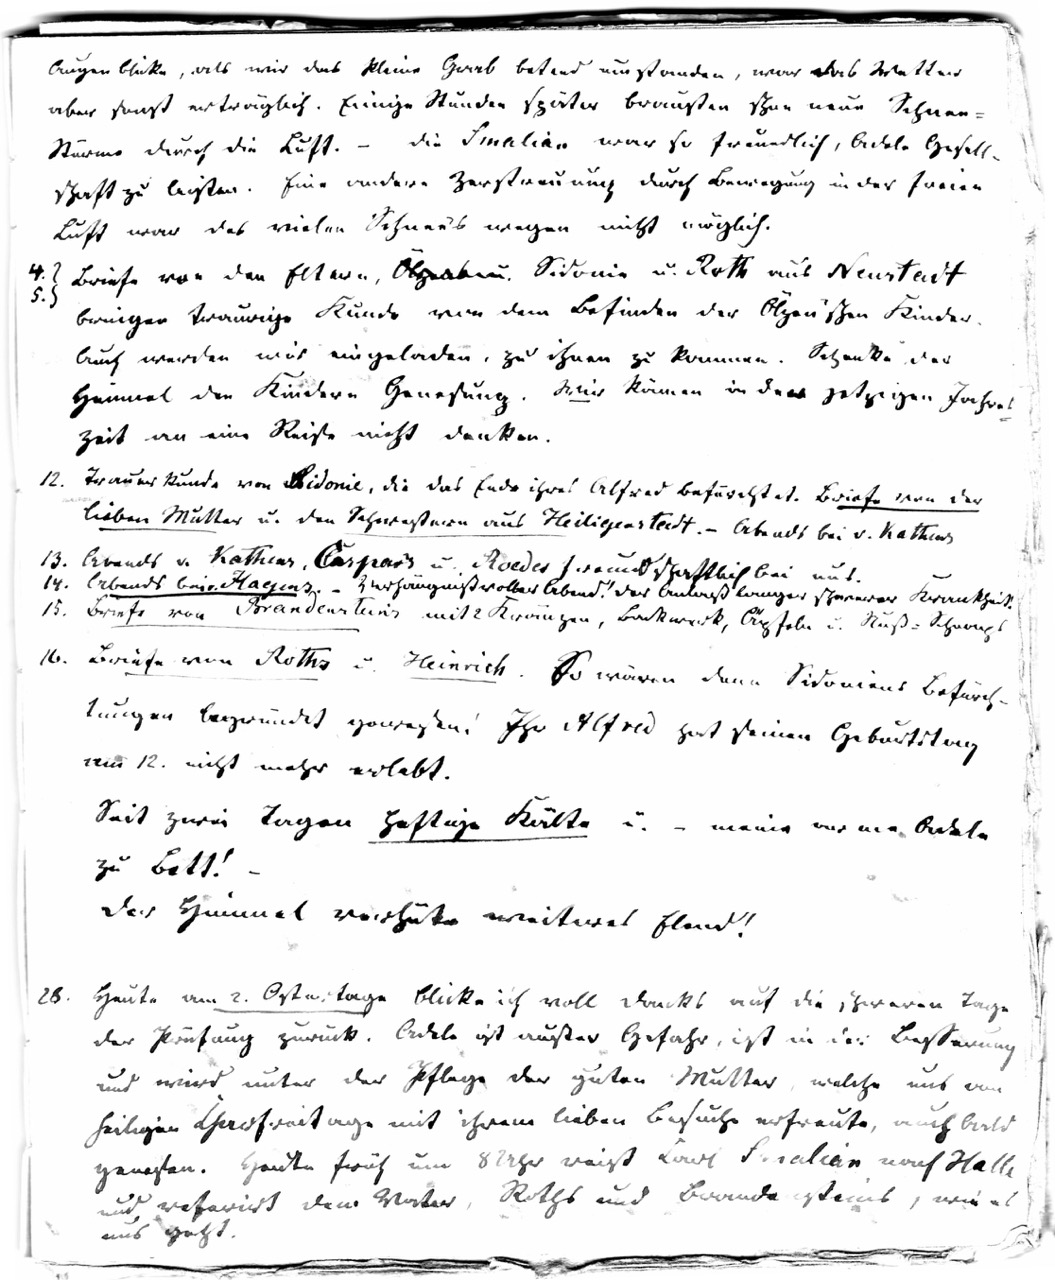 Augenblicke, als wir das kleine Grab betend umstanden, war das Wetter
aber sonst erträglich. Einige Stunden später brausten schon neue Schnee=
Stürme durch die Luft. – die Smalian war so freundlich, Adele Gesell-
schaft zu leisten. Eine andere Zerstreuung durch Bewegung in der freien
Luft war des vielen Schnee's wegen nicht möglich.
4. 5. Briefe von den Eltern, Ölzens u. Sidonie u. Roth aus Neustadt
bringen traurige Kunde von dem Befinden der Ölzen'schen Kinder.
Auch werden wir eingeladen, zu ihnen zu kommen. Schenke der
Himmel den Kindern Genesung. Wir können in der jetzigen Jahres=
zeit an eine Reise nicht denken.
12. Trauerkunde von Sidonie, die das Ende ihres Alfred befürchtet. Briefe von der
lieben Mutter u. den Schwestern aus Heiligenstadt. – Abends bei v. Kathens
13. Abends v. Kathens, Caspars u. Roedes freundschaftlich bei uns.
14. Abends bei v. Hagens. – Verhängnißvoller Abend! der Anlaß langer schwerer Krankheit.
15. Briefe von Brandensteins mit 2 Kränzen, Backwerk, Äpfeln u. Nuß=Schnaps
16. Briefe von Roths u. Heinrich. So wären denn Sidoniens Befürch-
tungen begründet gewesen! Ihr Alfred hat seinen Geburtstag
am 12. nicht mehr erlebt.
Seit zwei Tagen heftige Kälte u. – meine arme Adele
zu Bett! –
Der Himmel verhüte weiteres Elend!
28. Heute am 2. Ostertage blicke ich voll Danks auf die schweren Tage
der Prüfung zurück. Adele ist außer Gefahr, ist in der Besserung
und wird unter der Pflege der guten Mutter, welche uns am
heiligen Charfreitage mit ihrem lieben Besuche erfreute, auch bald
genesen. Heute früh um 8 Uhr reist Karl Smalian nach Halle
und referirt dem Vater, Roths und Brandensteins, wie es
uns geht.